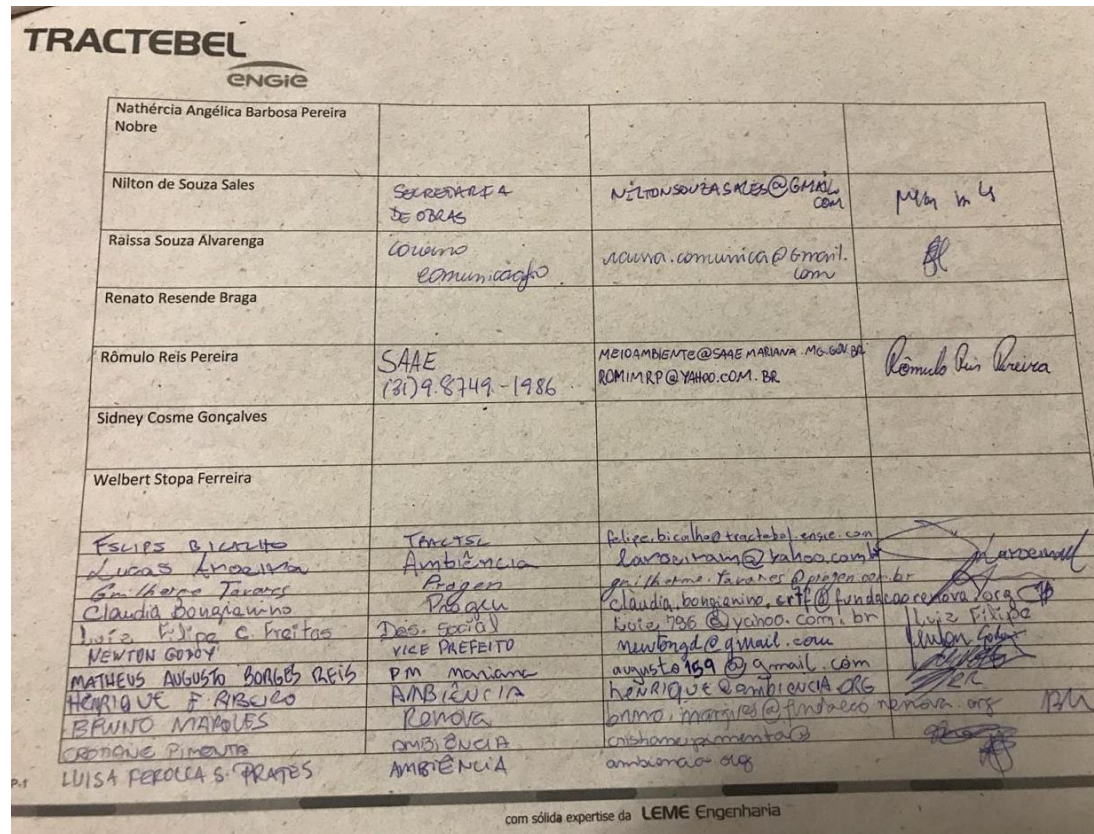 TRACTEBEL
ENGIE
Nathércia Angélica Barbosa Pereira
Nobre
Nilton de Souza Sales
SECRETARIA
DE OBRAS
NILTONSOUZASALES@GMAIL
COM
Raissa Souza Alvarenga
comunicação
raissa.comunica@gmail.
com
Renato Resende Braga
Rômulo Reis Pereira
SAAE
(31)9.8749-1986
MEIOAMBIENTE@SAAEMARIANA.MG.GOV.BR
ROMIMRP@YAHOO.COM.BR
Rômulo Reis Pereira
Sidney Cosme Gonçalves
Welbert Stopa Ferreira
FELIPE BICALHO felipe.bicalho@tractebel.engie.com
Lucas Aroeira Ambiência laroeiram@yahoo.com.br
Guilherme Tavares Progen guilherme.tavares@progen.com.br
Claudia Bongianino Progen claudia.bongianino.crtf@fundacaorenova.org
Luiz Filipe C. Freitas Des. Social luiz796@yahoo.com.br Luiz Filipe
NEWTON GODOY VICE PREFEITO newtongd@gmail.com Newton Godoy
MATHEUS AUGUSTO BORGES REIS PM Mariana augusto159@gmail.com
HENRIQUE F. RIBEIRO AMBIÊNCIA HENRIQUE@AMBIENCIA.ORG
BRUNO MARQUES Renova bruno.marques@fundacaorenova.org BM
PIMENTA AMBIÊNCIA
LUISA FEROLLA S. PRATES AMBIÊNCIA ambiencia.org
com sólida expertise da LEME Engenharia